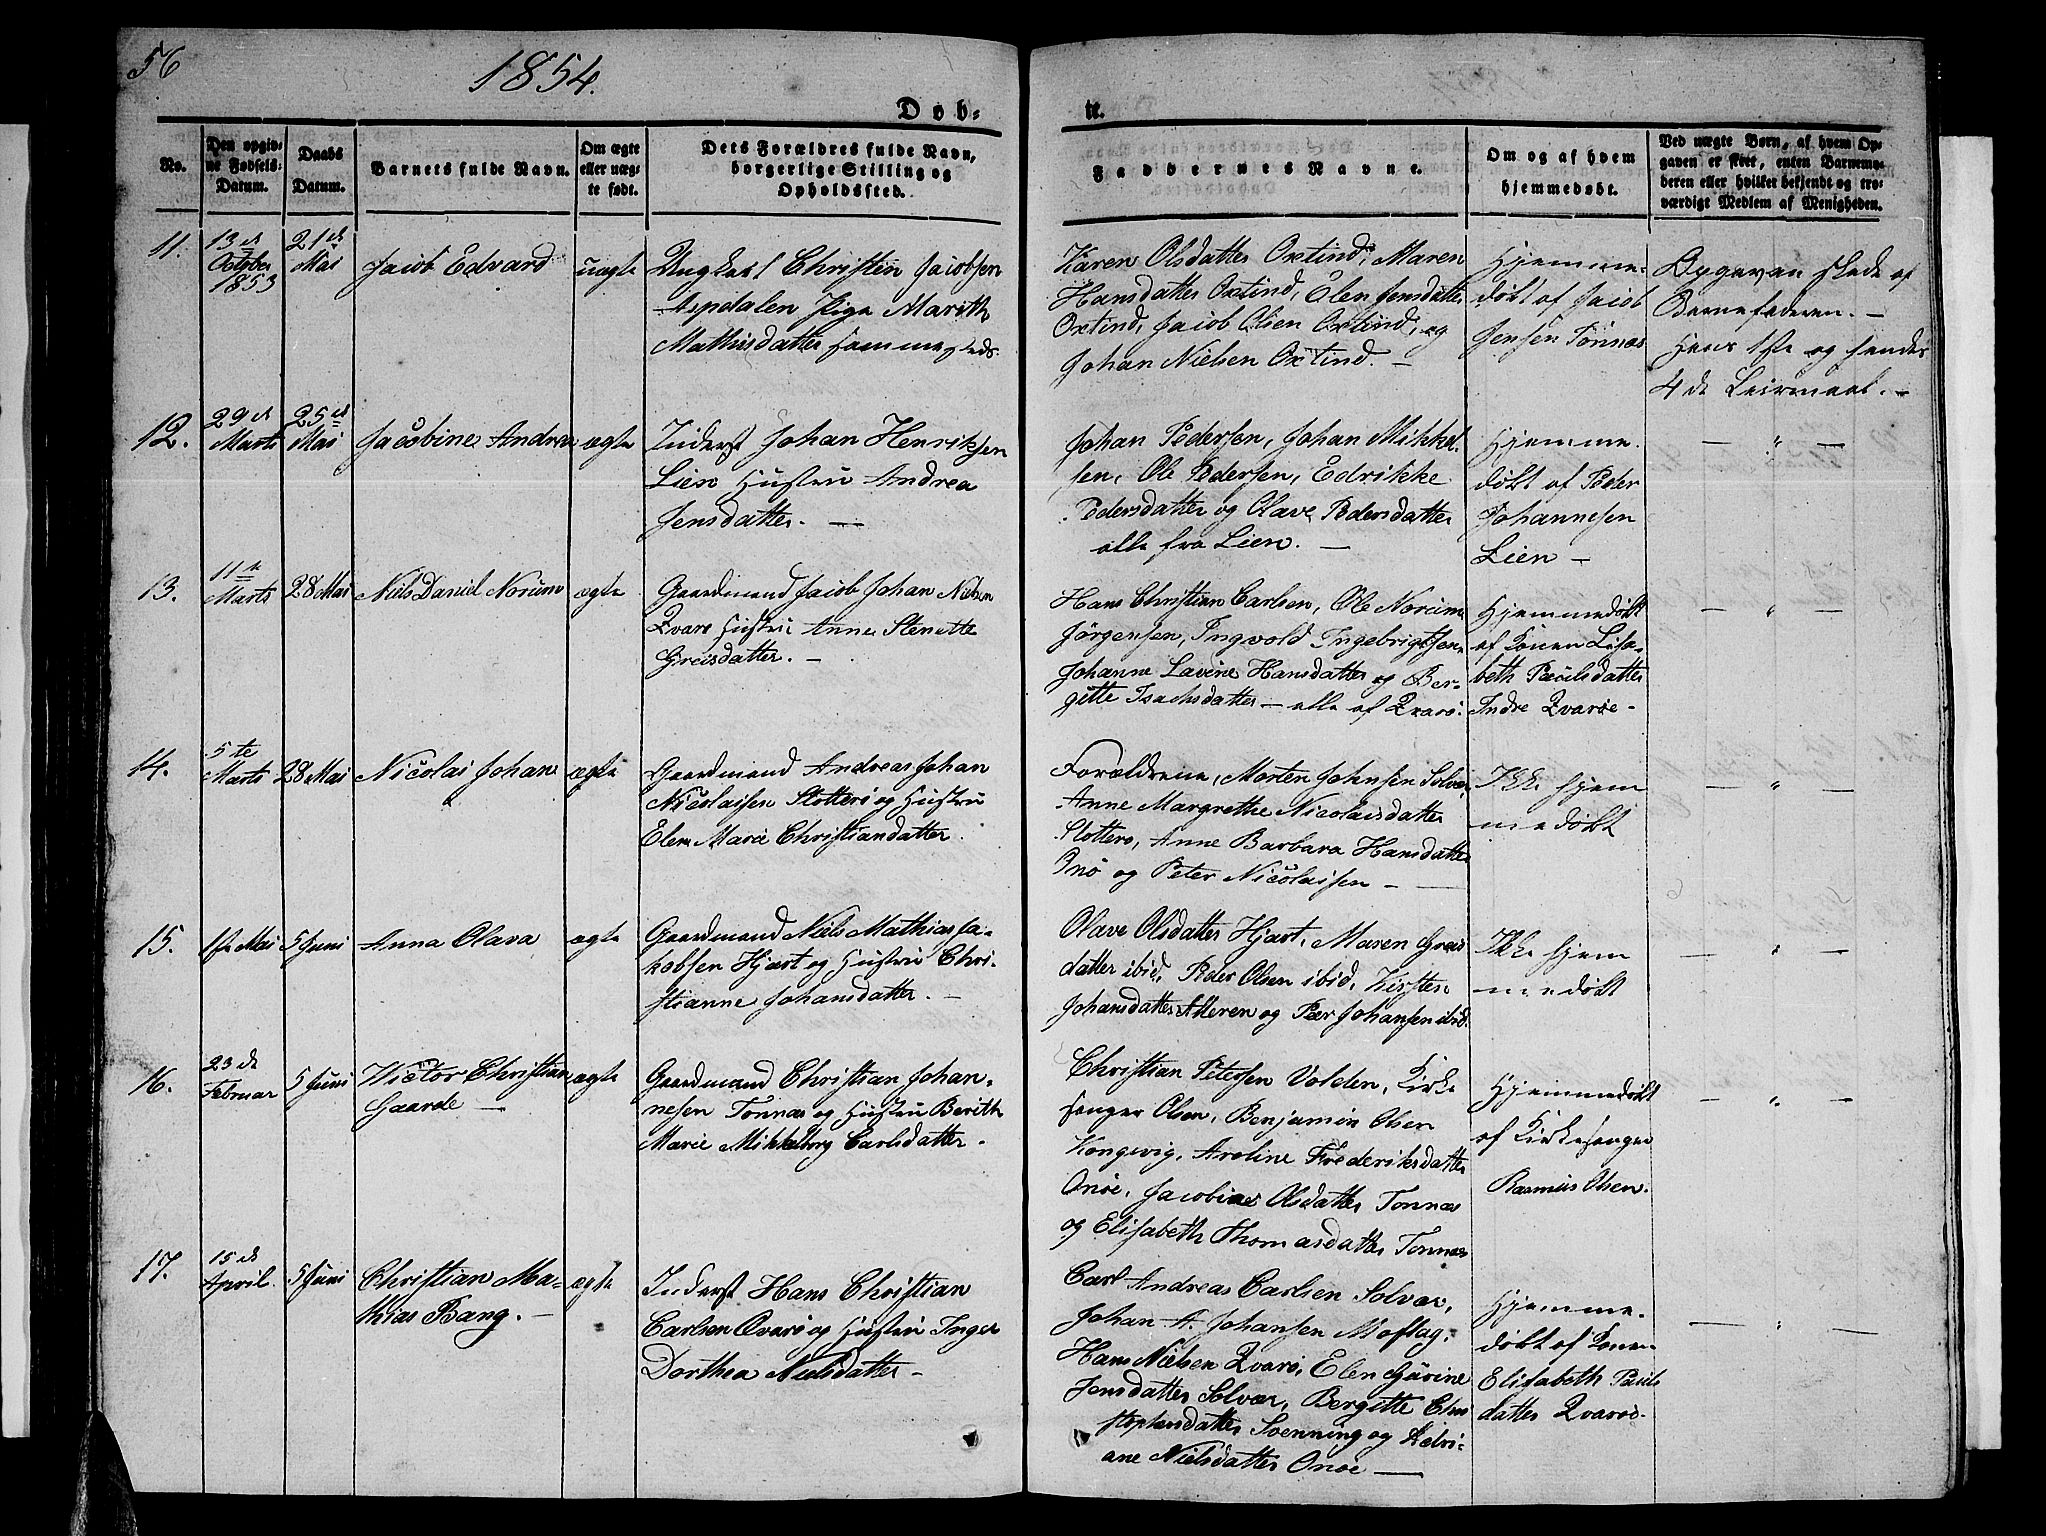 56
1854.
Døb-
te.
No.
Den opgiv-
ne Fødsels-
Datum.
Daabs
Datum.
Barnets fulde Navn.
Om ægte
eller uæg-
te født.
Dets Forældres fulde Navn,
borgerlige Stilling og
Opholdssted.
Faddernes Navne.
Om og af hvem
hjemmedøbt.
Ved uægte Børn, af hvem Op-
gaven er skeet, enten Barnemo-
deren eller hvilket bekjendt og tro-
værdigt Medlem af Menigheden.
11.
13de
October
1853
21de
Mai
Jacob Edvard
uægte
Ungkarl Christen Jacobsen
Aspdalen Pige Marith
Mathisdatter sammesteds
Karen Olsdatter Oxtind, Maren
Hansdatter Oxtind, Elen Jensdatter
Oxtind, Jacob Olsen Oxtind, og
Johan Nielsen Oxtind. —
Hjemme-
døbt af Jacob
Jensen Tonnæs
Opgaven skede af
Barnefaderen. —
Hans 1ste og hendes
4de Leiermaal. —
12.
29de
Marts
25de
Mai
Jacobine Andrea
ægte
Inderst Johan Henriksen
Lien Hustru Andrea
Jensdatter. —
Johan Pedersen, Johan Mikkel-
sen, Ole Pedersen, Edrikke
Pedersdatter og Olave Pedersdatter
alle fra Lien. —
Hjemme-
døbt af Peder
Johannesen
Lien —
— " —
13.
11te
Marts
28 Mai
Niels Daniel Norum
ægte
Gaardmand Jacob Johan Nielsen
Qvarø Hustru Anne Stenette
Greisdatter. —
Hans Christian Carlsen, Ole Norum
Jørgensen, Ingvold Ingebrigtsen
Johanne Lavine Hansdatter og Ber-
gitte Isachsdatter — alle af Qvarø.
Hjemmedøbt
af Konen Lisa-
beth Paulsdatter
Indre Qvarøe -
— " —
14.
5te
Marts
28 Mai
Nicolai Johan
ægte
Gaardmand Andreas Johan
Nicolaisen Slotterø og Hustru
Elen Marie Christiandatter.
Forældrene, Morten Johnsen Solvær,
Anne Margrethe Nicolaisdatter
Slotterø, Anne Barbara Hansdatter
Onø og Peter Nicolaisen —
Ikke hjem
medøbt
— " —
15.
1ste Mai
5 Juni
Anna Olava
ægte
Gaardmand Niels Mathias Ja-
kobsen Hjart og Hustru Chri-
stianne Johansdatter. —
Olave Olsdatter Hjart, Maren
datter ibid, Peder Olsen ibid, Kirsten
Johansdatter Alteren og Peer Johansen ibid.
Ikke hjem
medøbt
— " —
16.
23de
Februar
5 Juni
Victor Christian
Gaarde —
ægte
Gaardmand Christian Johan-
nesen Tonnæs og Hustru Berith
Marie Mikkelborg Carlsdatter -
Christian Petersen Volden, Kirke
sanger Olsen, Benjamin Olsen
Kongsvig, Aroline Frederiksdatter
Onøe, Jacobine Olsdatter Tonnæs
og Elisabeth Thomasdatter Tonnæs
Hjemmedøbt
af Kirkesanger
Rasmus Olsen.
— " —
17.
15de
April
5 Juni
Christian Ma-
thias Bang. —
ægte
Inderst Hans Christian
Carlsen Qvarø og Hustru Inger
Dorthea Nielsdatter —
Carl Andreas Carlsen Solvær,
Johan A. Johansen Moflag,
Hans Nielsen Qvarø, Elen Gurine
Jensdatter Solvær, Bergitte Chri
stophersdatter Svenning og
ane Nielsdatter Onøe —
Hjemme-
døbt af Konen
Elisabeth Pauls
datter Qvarøe
— " —